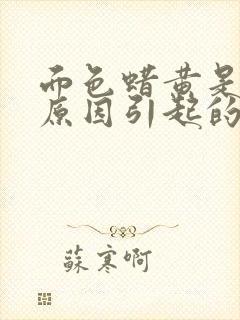 面色蜡黄是
原因引起的
蘇寒啊